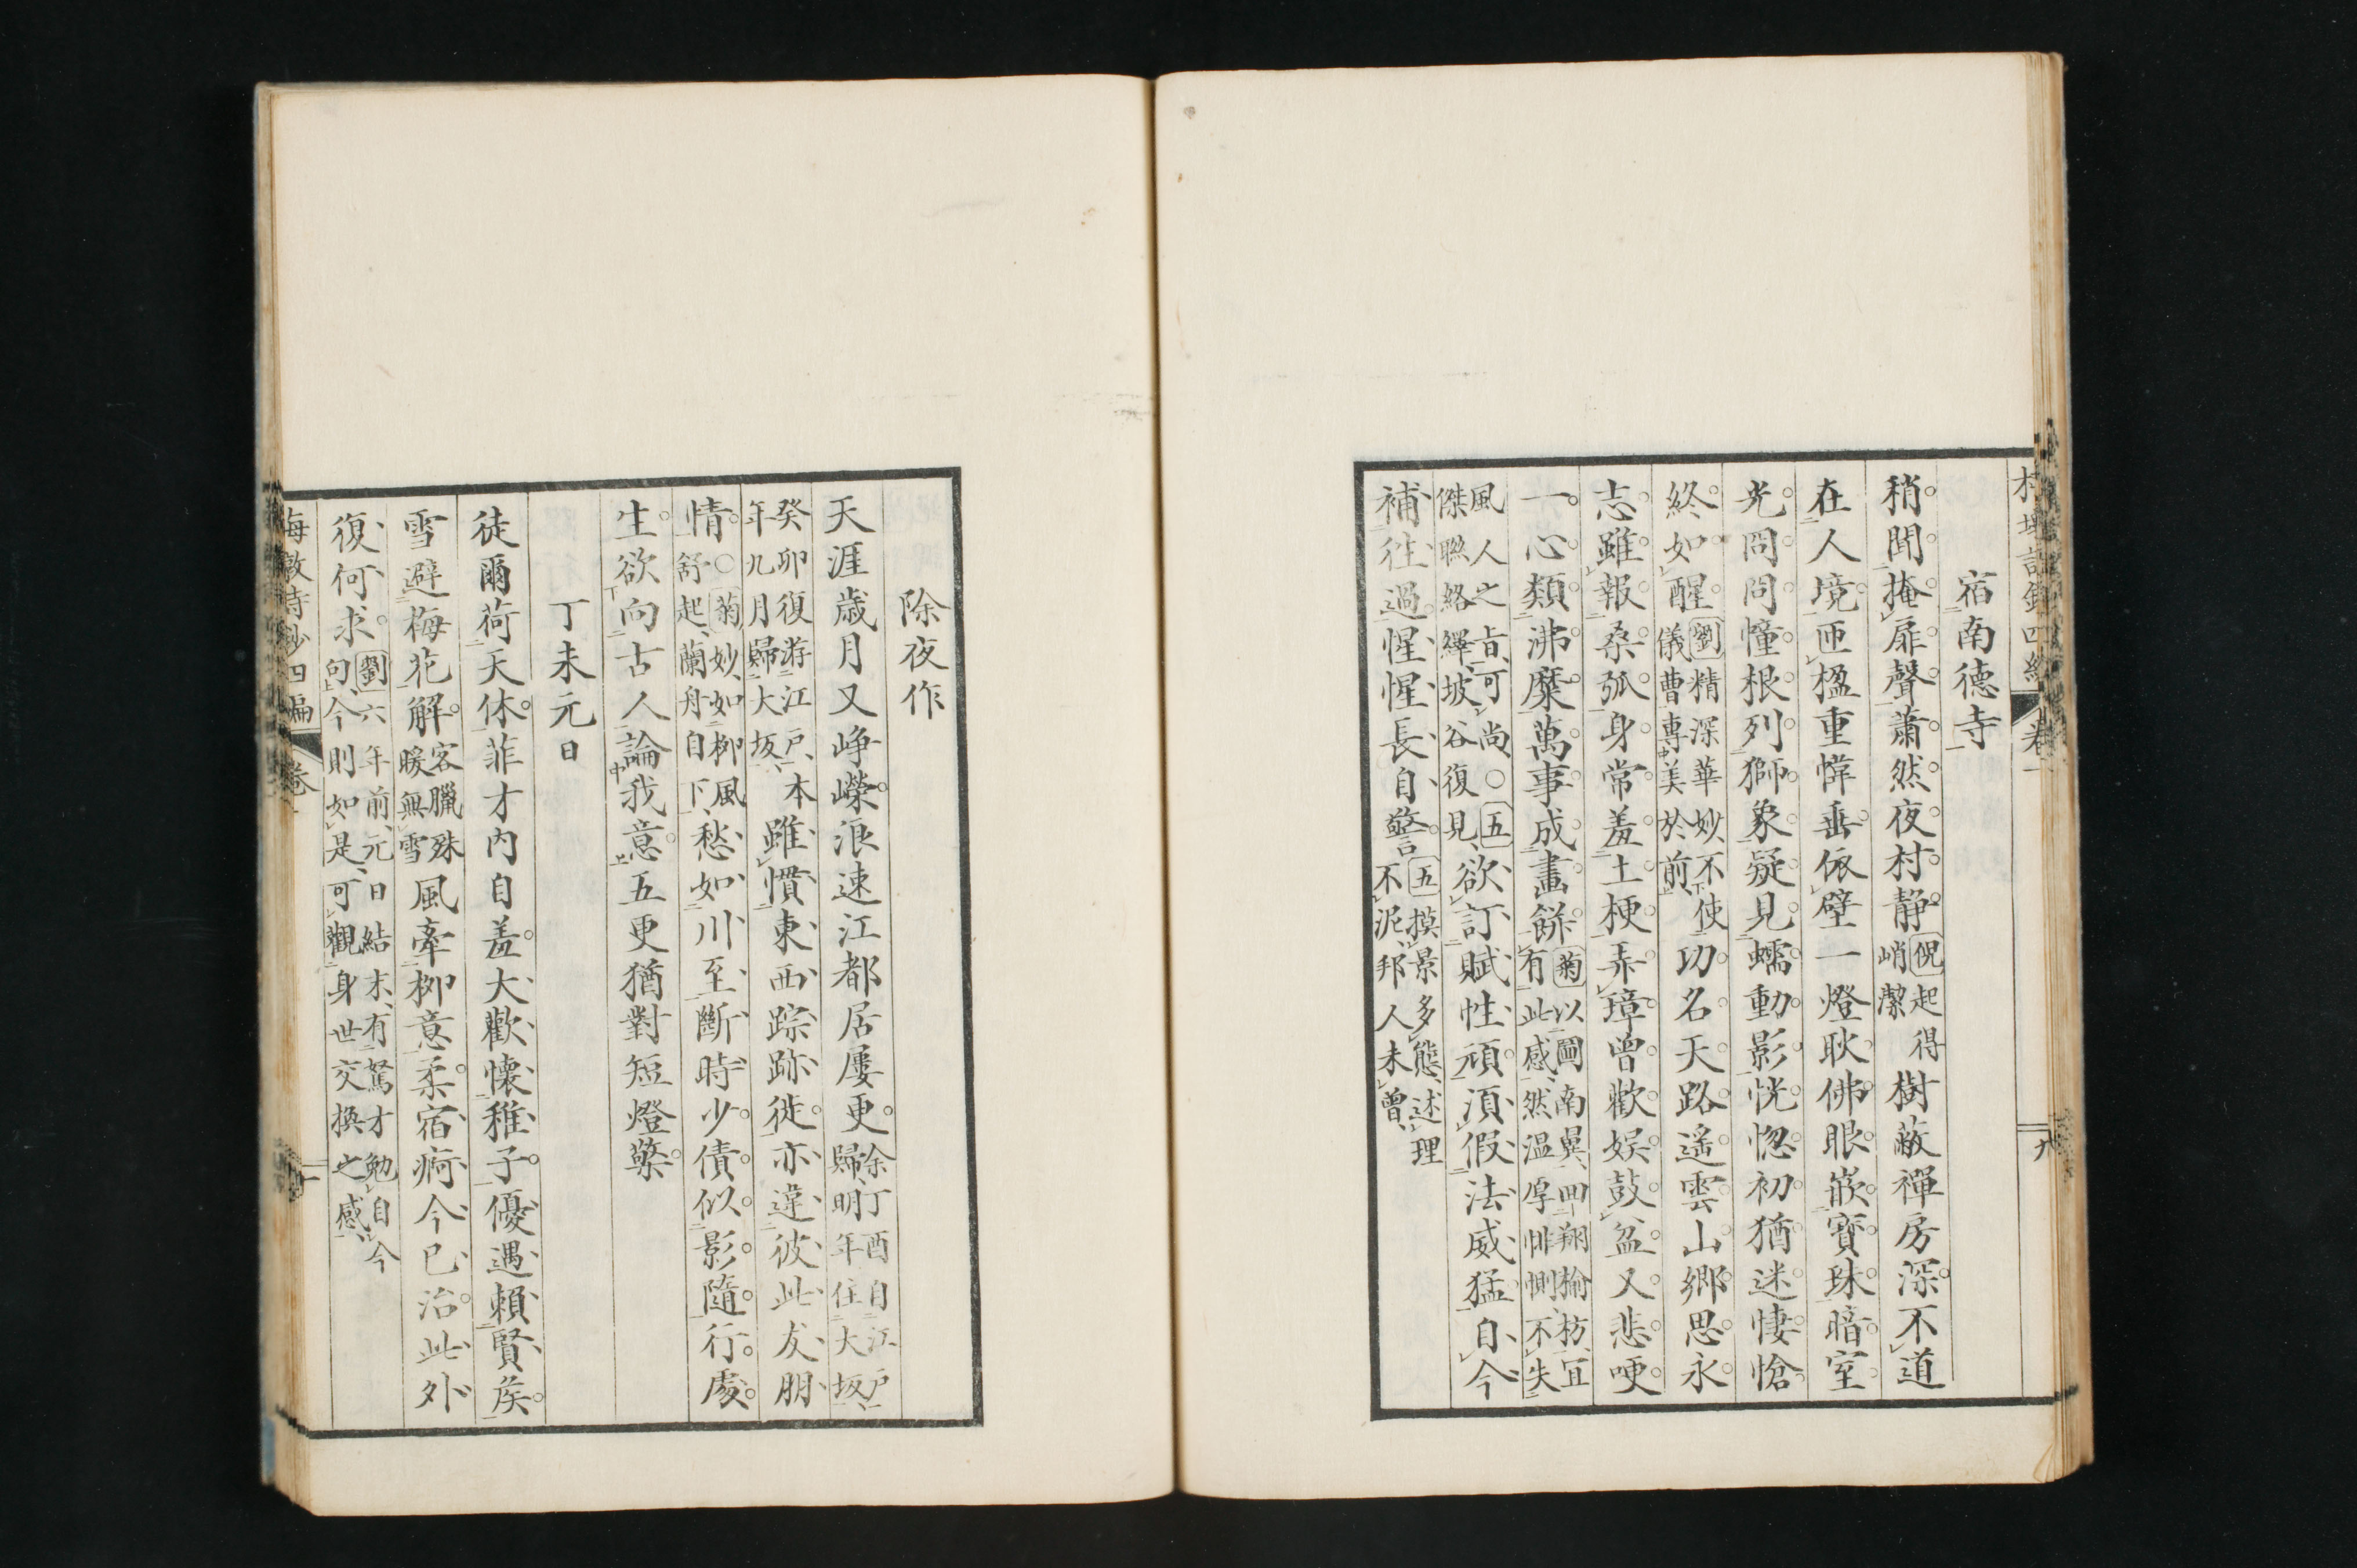 宿南德寺
稍聞掩扉聲蕭然夜村靜
倪起得
峭潔
樹蔽禪房深不道
在人境匝楹重幃垂依壁一燈耿佛眼嵌寶珠暗室
光冏冏幢根列獅象疑見蠕動影恍惚初猶迷悽愴
終如醒
劉精深華妙不使
儀曹專美於前
功名天路遙雲山鄉思永
志雖報桑弧身常羞土梗弄璋曾歡娛鼓盆又悲哽
一心類沸糜萬事成畫餅
菊以圖南異四翔揄枋宜
有此感然温厚悱惻不失
風人之旨可尚○五
傑聯絡繹坡谷復見
欲訂賦性頑須假法威猛自今
補往過惺惺長自警
五摸景多態述理
不泥邦人未曾
卷一
九
除夜作
天涯歲月又崢嶸浪速江都居屢更
余丁酉自江戶
歸明年住大坂
癸卯復游江戶本
年九月歸大坂
雖慣東西踪跡徙亦違彼此友朋
情
○菊妙如柳風
舒起蘭舟自下
愁如川至斷時少債似影隨行處
生欲向古人論我意五更猶對短燈檠
丁未元日
徒爾荷天休菲才內自羞大歡懷稚子優遇賴賢矦
雪避梅花解
客臘殊
暖無雪
風牽柳意柔宿痾今已治此外
復何求
劉六年前元日結末有駑才勉自今
句今則如是可觀身世交換之感
梅墩詩鈔四編
卷一